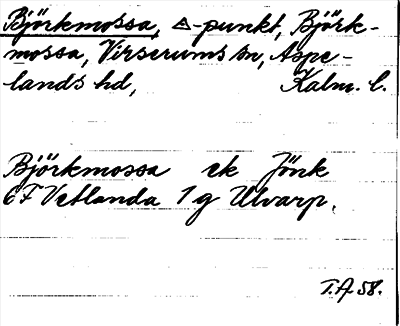 Björkmossa, △-punkt, Björk-
mossa, Virserums sn, Aspe-
lands hd, Kalm. l.
Björkmossa ek Jönk
6F Vetlanda 1 g Ulvarp.
T.A. 58.